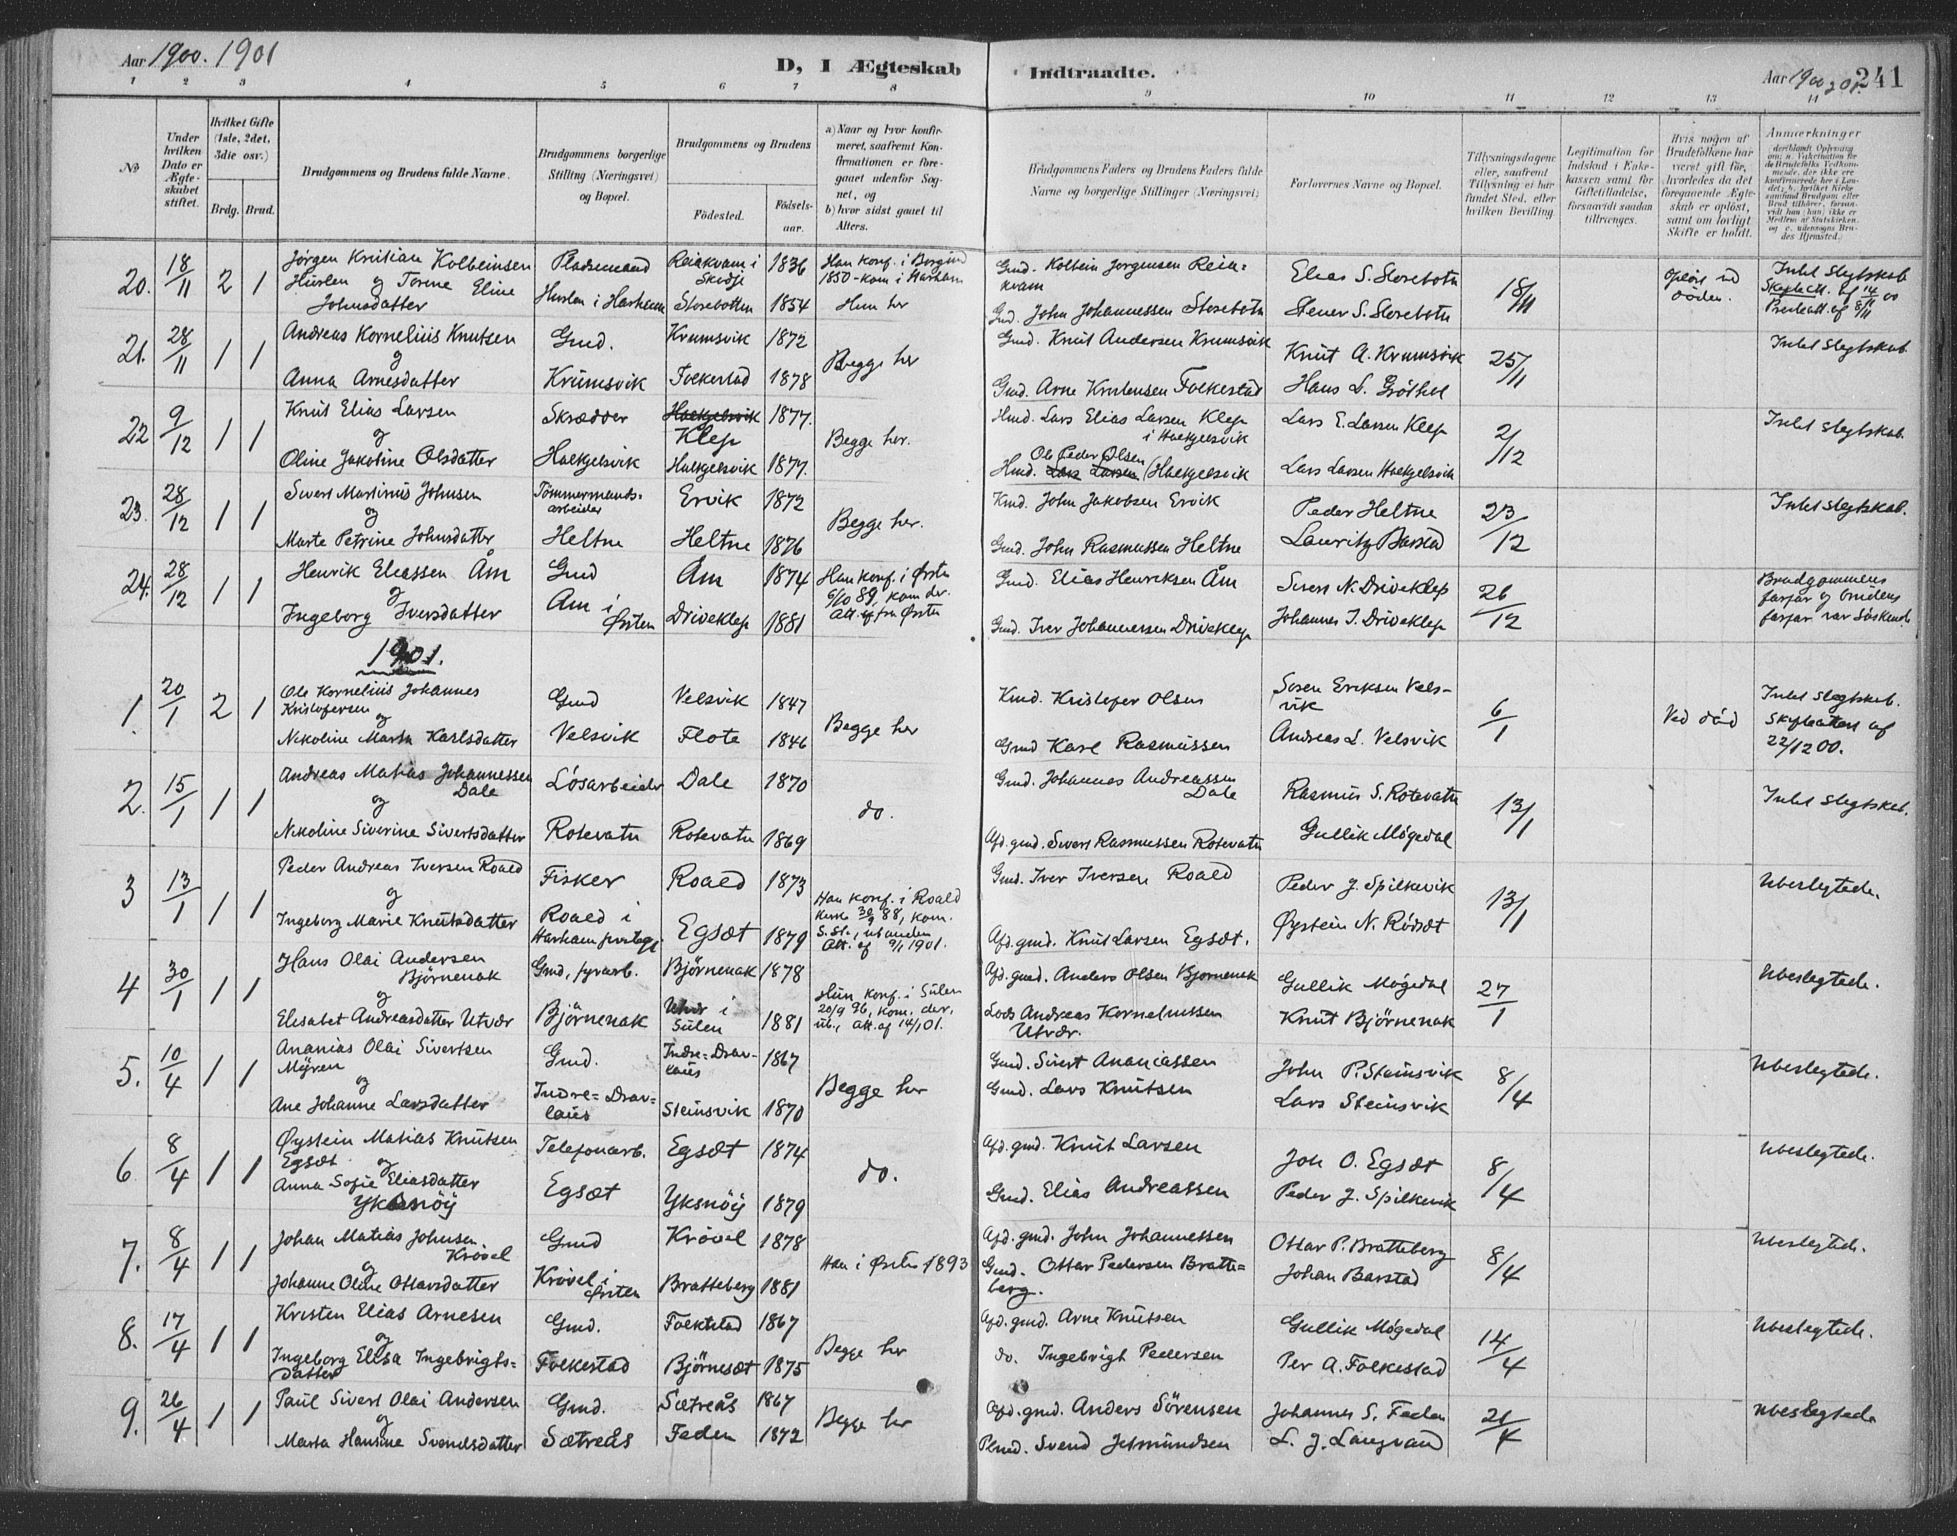 Aar 1900. 1901
D, I Ægteskab Indtraadte.
Aar 1900 241
1 2 3 4 5 6 7 8 9 10 11 12 13 14
No
Under hvilken Dato er Ægteskabet stiftet.
Hvilket Gifte (1ste, 2det, 3die osv.)
Brdg. Brud.
Brudgommens og Brudens fulde Navne.
Brudgommens borgerlige Stilling (Næringsvei) og Bopæl.
Brudgommens og Brudens
Fødested.
Fødselsaar.
a) Naar og hvor konfirmeret, saafremt Konfirmationen er foregaaet udenfor Sognet, og
b) hvor sidst gaaet til Alters.
Brudgommens Faders og Brudens Faders fulde Navne og borgerlige Stillinger (Næringsvei)
Forlovernes Navne og Bopæl.
Tillysningsdagene eller, saafremt Tillysning ei har fundet Sted, efter hvilken Bevilling
Legitimation for Indskud i Enkekassen samt for Giftetilladelse, forsaavidt saadan tiltrænges.
Hvis nogen af Brudefolkene har været gift før, hvorledes da det foregaaende Ægteskab er opløst, samt om lovligt Skifte er holdt.
Anmærkninger
20. 18/11 2 1 Jørgen Kristian Kolbeinsen Pladsemand Reiakvam i Skodje 1836 Han konf. i Borgund 1850 - kom i Harham
Huslen og Torine Eline Johnsdatter Huslen i Harham Storebotten 1854 Hun her
Gmd. Kolbein Jørgensen Reiakvam Elias S. Storebotn 18/11 Opløst ved døden. Intet Slegtskab
Gmd. John Johannessen Storebotn Stener S. Storebotn Skifteatt. af 14/11 00
21. 28/11 1 1 Andreas Kornelius Knutsen Gmd. Krumsvik 1872 Begge her
og
Anna Arnesdatter Krumsvik Folkestad 1878
Gmd. Knut Andersen Krumsvik Knut A. Krumsvik 25/11 Intet Slegtskab
Gmd. Arne Kristensen Folkestad Hans L. Grøthol
22 9/12 1 1 Knut Elias Larsen Skrædder Haekjelsvik Klep 1877. Begge her.
og
Oline Jakobine Olsdatter Haekjelsvik Haekjelsvik 1877.
Hmd. Lars Elias Larsen Klep i Haekjelsvik Lars E. Larsen Klep 2/12 Intet Slegtskab.
Ole Peder Olsen
Hmd. Lars Larsen Haekjelsvik Lars Larsen Haekjelsvik
23. 28/12 1 1 Sivert Martinus Johnsen Tømmermandsarbeider Ervik 1872 Begge her.
og
Marte Petrine Johnsdatter Heltne Heltne 1876
Kmd. John Jakobsen Ervik Peder Heltne 23/12 Intet Slegtskab.
Gmd. John Rasmussen Heltne Lauritz Barstad
24. 28/12 1 1 Henrik Eliassen Åm Gmd Åm 1874 Han konf. i Ørsten 6/10 89, kom der. Att. fra Ørsten
og
Ingeborg Iversdatter Åm i Ørsten Driveklep 1881
Gmd. Elias Henriksen Åm Sivert N. Driveklep 26/12 Brudgommens farfar og brudens farfar var Søskende.
Gmd. Iver Johannessen Driveklep Johannes I. Driveklep
1901.
1. 20/1 2 1 Ole Kornelius Johannes Kristofersen Gmd Velsvik 1847 Begge her
og
Nikoline Marta Karlsdatter Velsvik Flote 1846
Kmd. Kristofer Olsen Soren Eriksen Velsvik 6/1 Ved død Intet Slegtskab. Skifteattest af 22/12 00.
Gmd Karl Rasmussen Andreas L. Velsvik
2. 15/1 1 1 Andreas Matias Johannessen Dale Løsarbeider Dale 1870 do.
og
Nikoline Siverine Sivertsdatter Rotevatn Rotevatn 1869
Gmd. Johannes Andreassen Dale Rasmus S. Rotevatn 13/1 Intet Slegtskab.
Afd. gmd. Sivert Rasmussen Rotevatn Gullik Møgedal
3 13/1 1 1 Peder Andreas Iversen Roald Fisker Roald 1873 Han konf. i Roald Kirke 30/9 88, kom. S. St., Att. af 9/1 1901.
og
Ingeborg Marie Knutsdatter Roald i Harham Egsæt 1879
Gmd. Iver Iversen Roald Peder J. Spilkevik 13/1 Ubeslegtede.
Afd. gmd. Knut Larsen Egsæt. Øystein N. Rødsæt
4 30/1 1 1 Hans Olai Andersen Bjørnenak Gmd, fyrarb. Bjørnenak 1878 Hun konf. i Sulen 20/9 96, kom. der, att. af 14/1 01.
og
Elisabet Andreasdatter Utvær Bjørnenak Utvær i Sulen 1881
Afd. gmd. Anders Olsen Bjørnenak Gullik Møgedal 27/1 Ubeslegtede.
Lods Andreas Korneliussen Utvær. Knut Bjørnenak
5. 10/4 1 1 Ananias Olai Sivertsen Myren Gmd. Indre-Dravlaus 1867 Begge her
og
Ane Johanne Larsdatter Indre-Dravlaus Steinsvik 1870
Gmd. Sivert Ananiassen John P. Steinsvik 8/4 Ubeslegtede.
Gmd. Lars Knutsen Lars Steinsvik
6 8/4 1 1 Øystein Matias Knutsen Egsæt Telefonarb. Egsæt 1874 do.
og
Anna Sofie Eliasdatter Yksnöy Egsæt Yksnöy 1879
Afd. gmd. Knut Larsen Jon O. Egsæt 8/4 Ubeslegtede.
Gmd. Elias Andreassen Peder J. Spilkevik
7. 8/4 1 1 Johan Matias Johnsen Krövel Gmd Krövel 1878 Han i Ørsten 1893
og
Johanne Oline Ottarsdatter Krövel i Ørsten Bratteberg 1881
Afd. gmd. John Johannessen Ottar P. Bratteberg 8/4 Ubeslegtede.
Gmd. Ottar Pedersen Bratteberg. Johan Barstad
8. 17/4 1 1 Kristen Elias Arnesen Gmd. Folkestad 1867 Begge her
og
Ingeborg Elisa Ingebrigtsdatter Folkestad Bjørnesæt 1875
Afd. gmd. Arne Knutsen Gullik Møgedal 14/4 Ubeslegtede.
do. Ingebrigt Pedersen Per A. Folkestad
9. 26/4 1 1 Paul Sivert Olai Andersen Gmd. Sætreås 1867 Begge her
og
Marta Hansine Svendsdatter Sætreås Feden 1872
Afd. gmd. Anders Sörensen Johannes S. Feden 21/4 Ubeslegtede
Plmd. Svend Jetmundsen L. J. Langvad